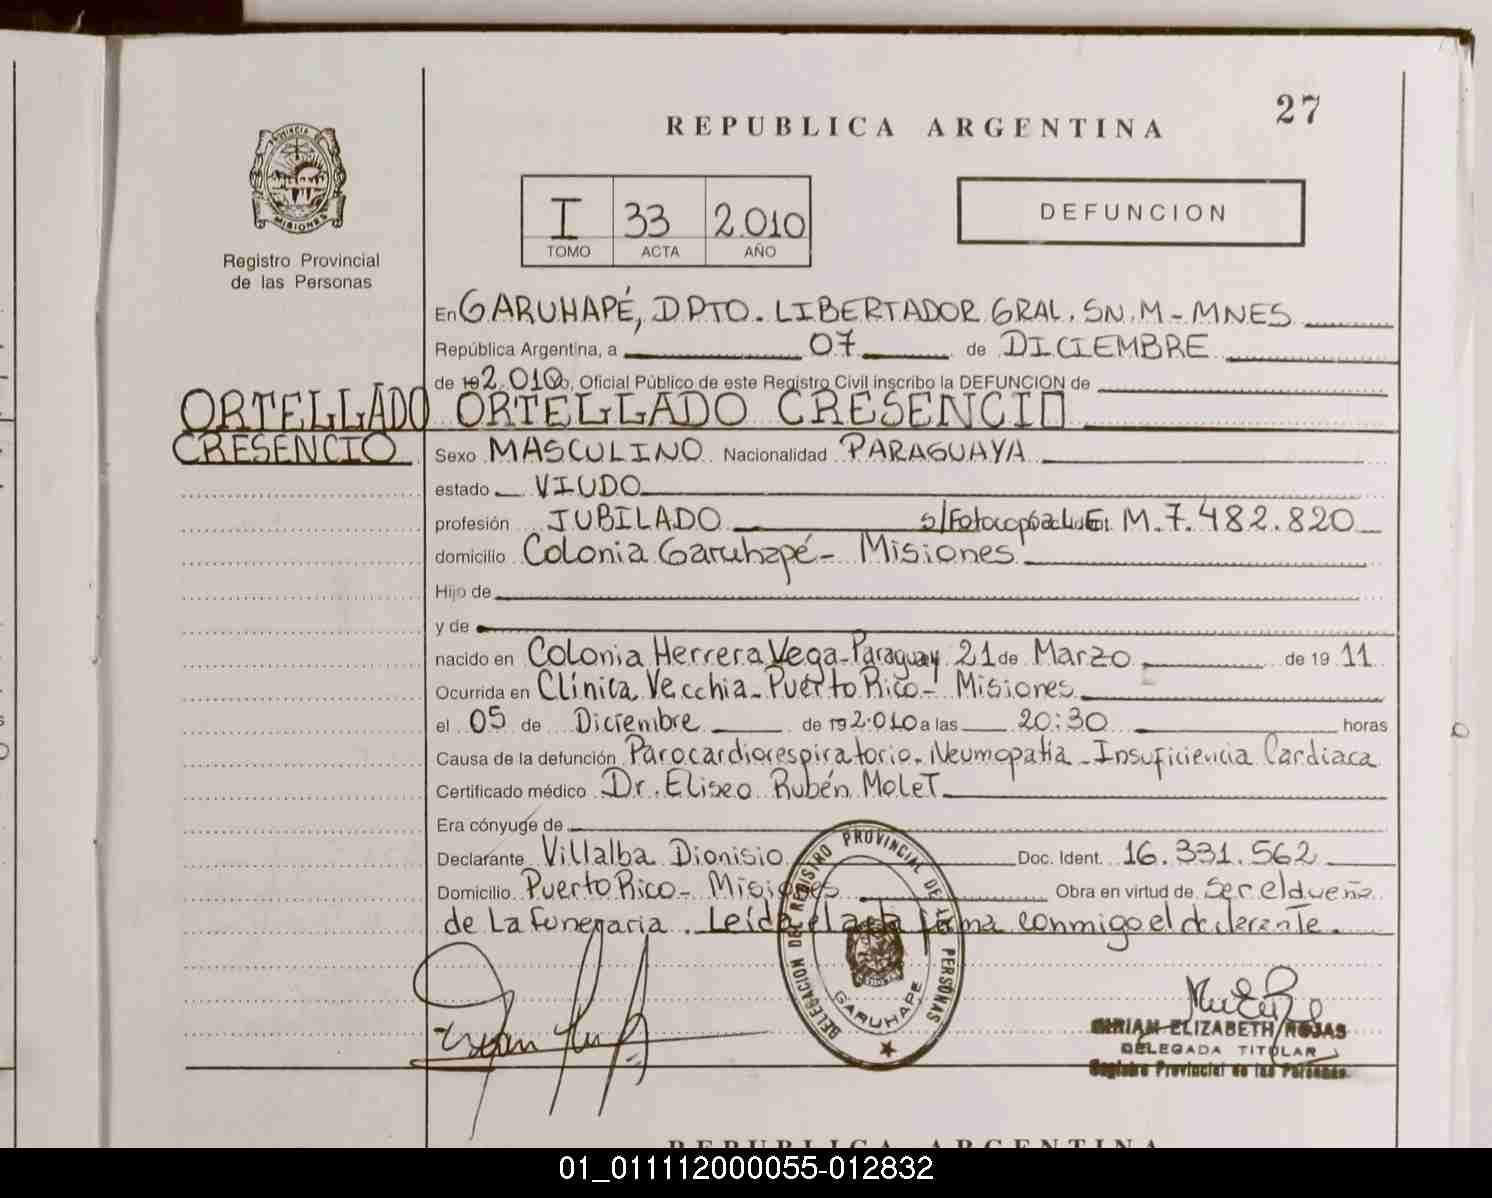 27
REPUBLICA ARGENTINA
PROVINCIA DE MISIONES
Registro Provincial
de las Personas
I 33 2.010
TOMO ACTA AÑO
DEFUNCION
En GARUHAPÉ, DPTO. LIBERTADOR GRAL. SN. M - MNES
República Argentina, a 07 de DICIEMBRE
de 19 2.010, Oficial Público de este Registro Civil inscribo la DEFUNCION de
ORTELLADO CRESENCIO
ORTELLADO
CRESENCIO
Sexo MASCULINO Nacionalidad PARAGUAYA
estado VIUDO
profesión JUBILADO s/Fotocopia M.7.482.820
domicilio Colonia Garuhapé - Misiones
Hijo de
y de
nacido en Colonia Herrera Vega - Paraguay 21 de Marzo de 19 11
Ocurrida en Clínica Vecchia - Puerto Rico - Misiones
el 05 de Diciembre de 19 2.010 a las 20:30 horas
Causa de la defunción Parocardiorespiratorio - Neumopatia - Insuficiencia Cardiaca
Certificado médico Dr. Eliseo Rubén Molet
Era cónyuge de
Declarante Villalba Dionisio Doc. Ident. 16.331.562
Domicilio Puerto Rico - Misiones Obra en virtud de ser el dueño
de La funeraria. Leída el acta firma conmigo el declarante.
DELEGACION DEL REGISTRO PROVINCIAL DE LAS PERSONAS
GARUHAPE
MIRIAM ELIZABETH ROJAS
DELEGADA TITULAR
Registro Provincial de las Personas
REPUBLICA ARGENTINA
01_011112000055-012832